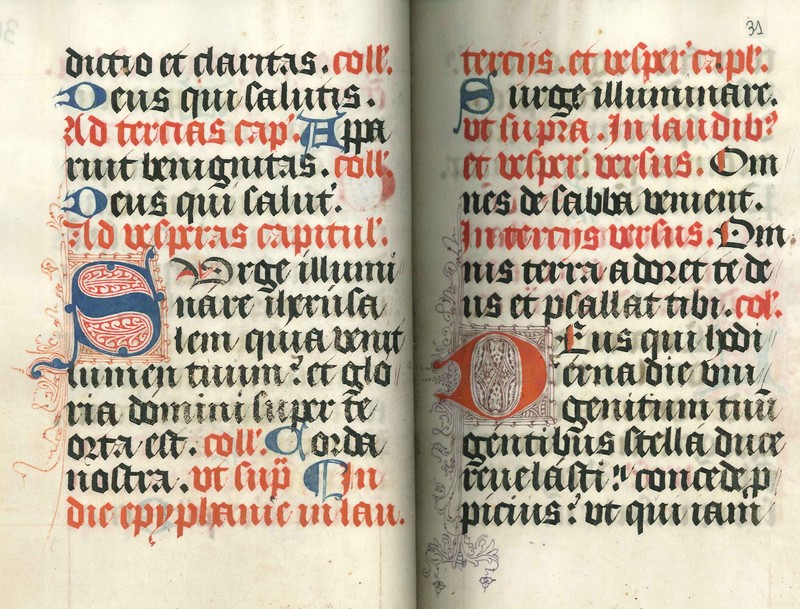 dictio et claritas. coll'.
Deus qui salutis.
Ad tercias cap'. Appa
ruit benignitas. coll'
Deus qui salut'.
Ad vesperas capitul'.
SUrge illumi
nare iherusa
lem quia venit
lumen tuum? et glo
ria domini super te
orta est. coll'. Corda
nostra. vt sup̄ In
die epyphanie in lau.
31
tercijs. et vesper' capl'.
Surge illuminare.
vt supra. In laudib'
et vesper'. versus. Om
nes de sabba venient.
In tercijs versus. Om
nis terra adoret te de
us et psallat tibi. col'.
DEus qui hodi
erna die vni
genitum tuū
gentibus stella duce
reuelasti: concede p
picius? vt qui iam